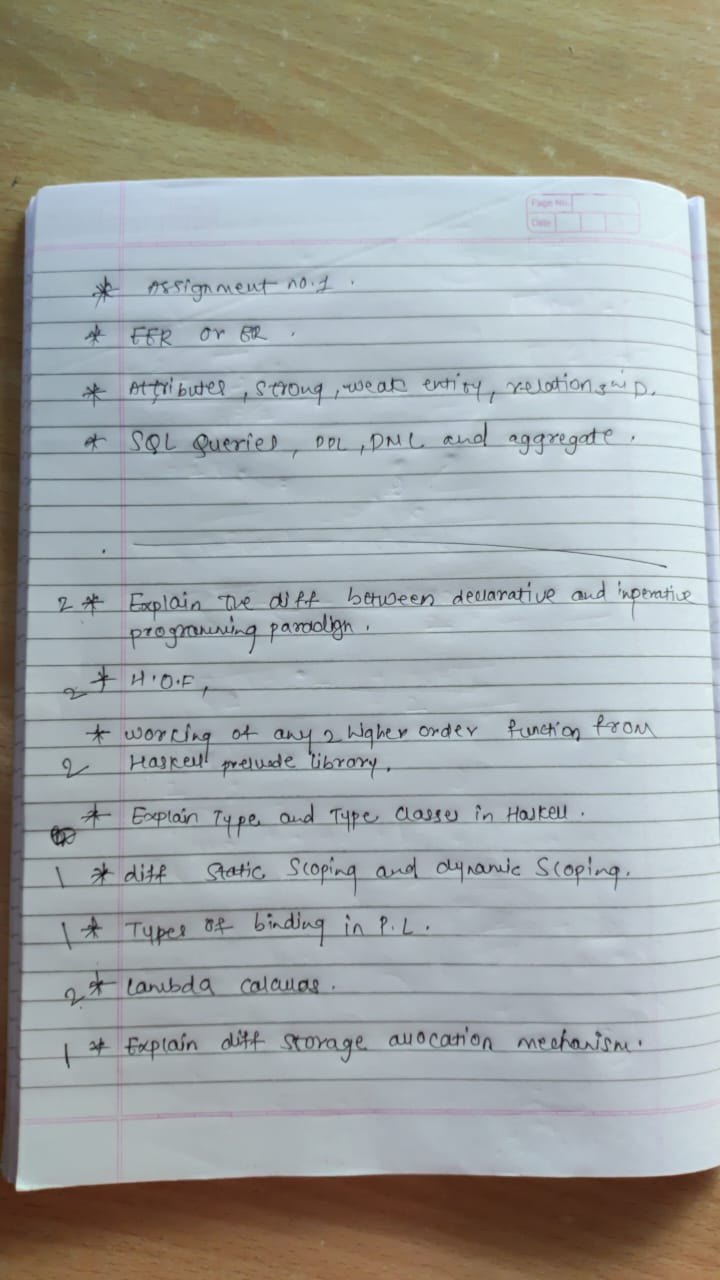 Page No.
Date
* Assignment no.1.
* EER or ER.
* Attributes, strong, weak entity, relationship.
* SQL Queries, DDL, DML and aggregate.
2 * Explain the diff between declarative and imperative
programming paradign.
2 * H.O.F,
* working of any 2 higher order function from
2 Haskell prelude library.
* Explain Type and Type Classes in Haskell.
1 * diff Static Scoping and dynamic Scoping.
1 * Types of binding in P.L.
2 * Lambda calculas.
1 * Explain diff storage allocation mechanism.